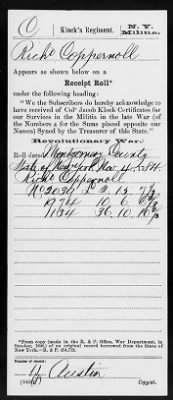 C | Klock's Regiment. | N. Y. Militia.
Richd Coppernoll
Appears as shown below on a
Receipt Roll*
under the following heading:
"We the Subscribers do hereby acknowledge to
have received of Colo Jacob Klock Certificates for
our Services in the Militia in the late War (of
the Numbers & for the Sums placed opposite our
Names) Syned by the Treasurer of this State."
Revolutionary War.
Roll dated Montgomery County
State of New York, Nov 4, 1784.
Richd Coppernoll
No 2039
1974 10. 6.
1134 36. 10.
*From copy (made in the R. & P. Office, War Department, in
October, 1890) of an original record borrowed from the State of
New York.—R. & P.
Number of record:
Austin
Copyist.